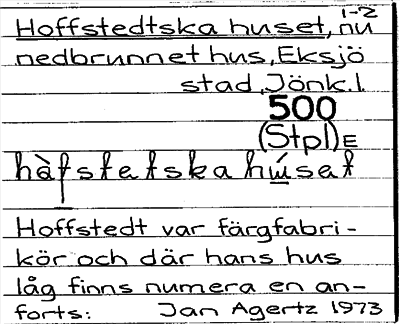 1-2
Hoffstedtska huset, nu
nedbrunnet hus, Eksjö
stad, Jönk.l.
500
(Stpl) E
hàfstetska húset
Hoffstedt var färgfabri-
kör och där hans hus
låg finns numera en an-
forts: Jan Agertz 1973